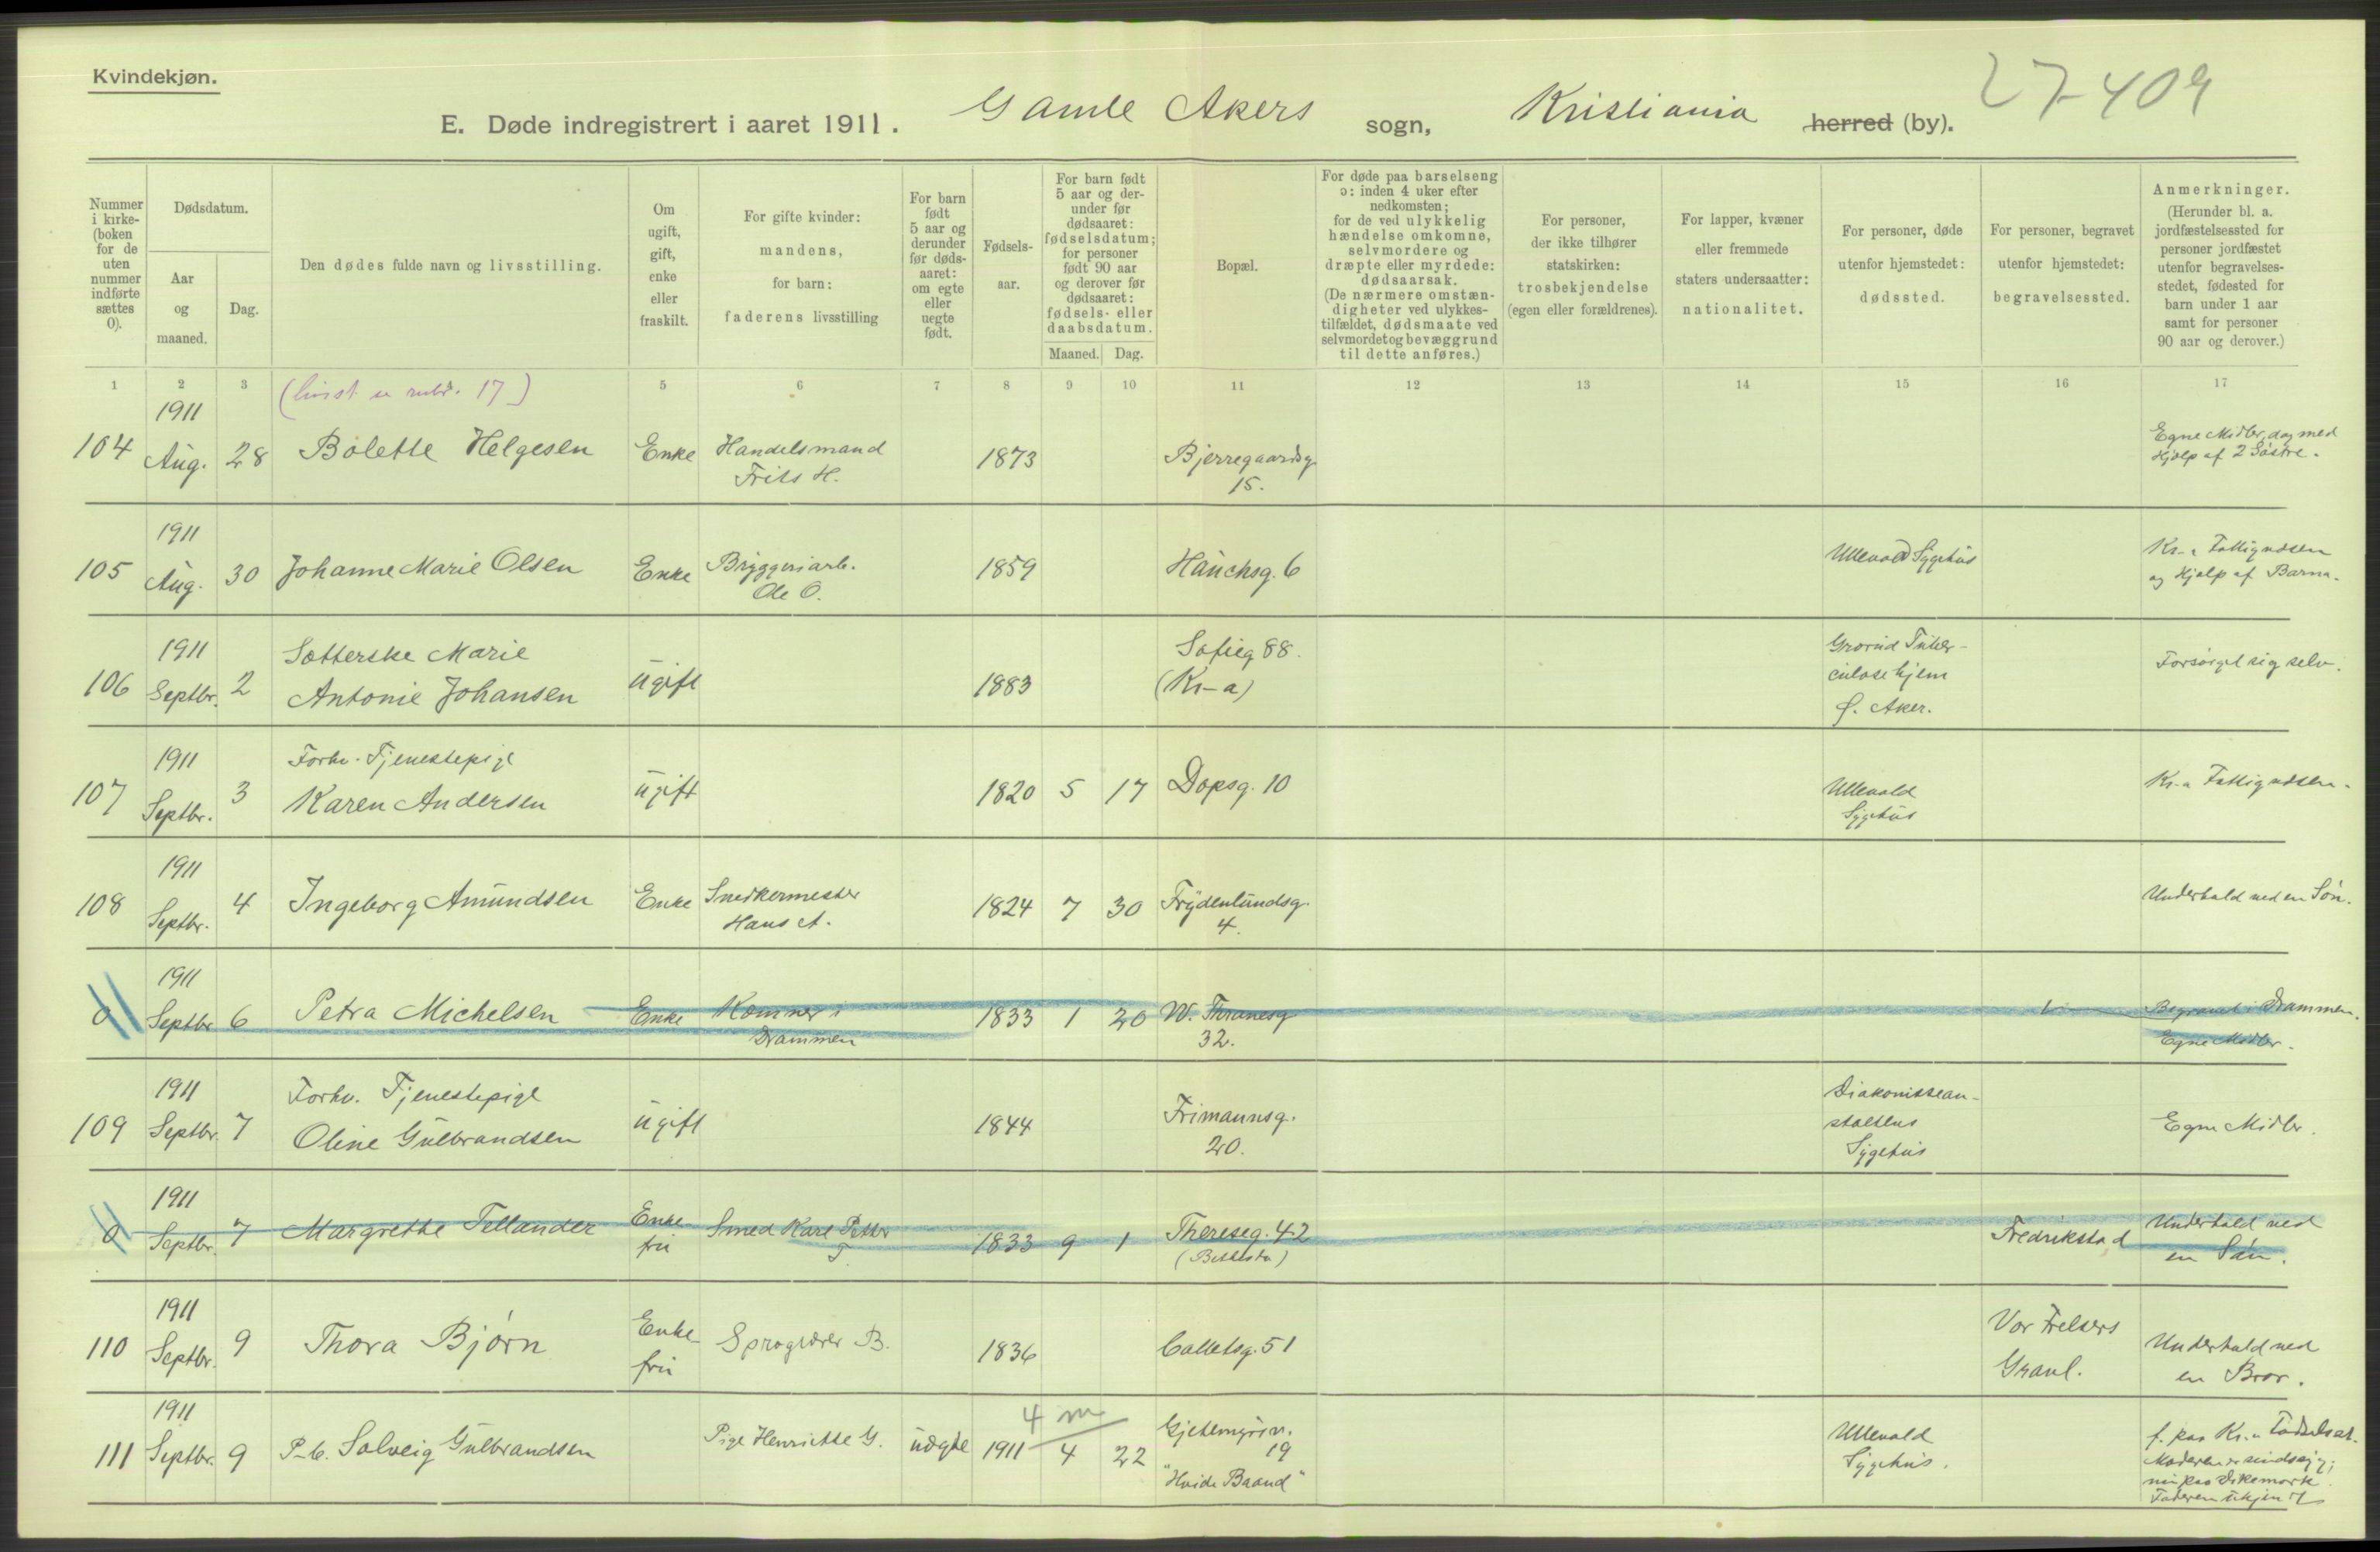 Kvindekjøn.
E. Døde indregistrert i aaret 1911. Gamle Akers sogn, Kristiania herred (by). 27-409
Nummer i kirke- (boken for de uten nummer indførte sættes 0).
Dødsdatum.
Aar og maaned.
Dag.
Den dødes fulde navn og livsstilling.
Om ugift, gift, enke eller fraskilt.
For gifte kvinder: mandens, for barn: faderens livsstilling
For barn født 5 aar og derunder før døds- aaret: om egte eller uegte født.
Fødsels- aar.
For barn født 5 aar og der- under før dødsaaret: fødselsdatum; for personer født 90 aar og derover før dødsaaret: fødsels- eller daabsdatum.
Maaned. Dag.
Bopæl.
For døde paa barselseng ɔ: inden 4 uker efter nedkomsten; for de ved ulykkelig hændelse omkomne, selvmordere og dræpte eller myrdede: dødsaarsak. (De nærmere omstæn- digheter ved ulykkes- tilfældet, dødsmaate ved selvmordet og bevæggrund til dette anføres.)
For personer, der ikke tilhører statskirken: trosbekjendelse (egen eller forældrenes).
For lapper, kvæner eller fremmede staters undersaatter: nationalitet.
For personer, døde utenfor hjemstedet: dødssted.
For personer, begravet utenfor hjemstedet: begravelsessted.
Anmerkninger. (Herunder bl. a. jordfæstelsessted for personer jordfæstet utenfor begravelses- stedet, fødested for barn under 1 aar samt for personer 90 aar og derover.)
1 2 3 (livsst. se rubr. 17) 5 6 7 8 9 10 11 12 13 14 15 16 17
1911
104 Aug. 28 Bolette Helgesen Enke Handelsmand 1873 Bjerregaardsg. Egne Midler, dog med
Frits H. 15. Hjælp af 2 Søstre.
1911
105 Aug. 30 Johanne Marie Olsen Enke Bryggeriarb. 1859 Hauchsg. 6 Ullevold Sygehus Kr-a Fattigvæsen
Ole O. og Hjælp af Barna.
1911 Sætterske Marie Sofieg 88. Grorud Tuber-
106 Septbr. 2 Antonie Johansen ugift 1883 (Kr-a) culosehjem Forsørget sig selv.
Ø. Aker.
1911 Forhv. Tjenestepige
107 Septbr. 3 Karen Andersen ugift 1820 5 17 Dopsg. 10 Ullevold Kr-a Fattigvæsen.
Sygehus
1911
108 Septbr. 4 Ingeborg Amundsen Enke Snedkermester 1824 7 30 Frydenlundsg. Underhold ved en Søn.
Hans A. 4.
1911
0 Septbr 6 Petra Michelsen Enke Kæmner i 1833 1 20 W. Thranesg Begravet i Drammen.
Drammen 32. Egne Midler.
1911 Forhv. Tjenestepige Diakonissean-
109 Septbr. 7 Oline Gulbrandsen ugift 1844 Frimannsg. staltens Egne Midler.
20. Sygehus
1911
0 Septbr. 7 Margrethe Tellander Enke- Smed Karl Petter 1833 9 1 Thereseg. 42 Fredrikstad Underhold ved
fru T. (Bethesda) en Søn.
1911
110 Septbr. 9 Thora Bjørn Enke- Sproglærer B. 1836 Colletsg. 51 Vor Frelsers Underhold ved
fru Gravl. en Bror.
1911 4 m
111 Septbr. 9 P-b. Solveig Gulbrandsen Pige Henriette G. uægte 1911 4 22 Gjetemyrsv. Ullevold f. paa Kr.a Fødselsst.
19 Sygehus. Moderen er sindssyg;
"Hvide Baand" nu paa Dikemark.
Faderen ukjendt